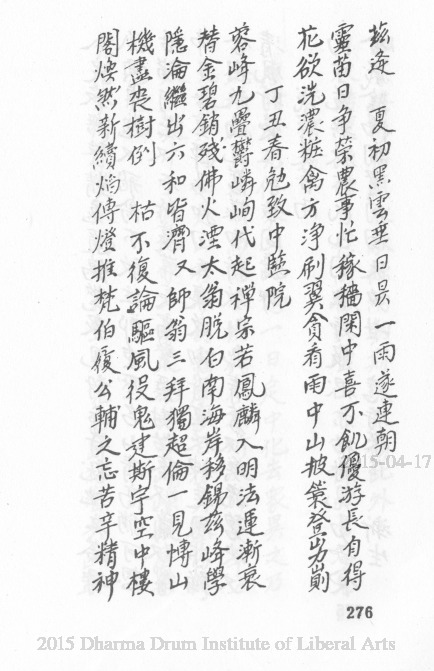 茲逢 夏初黑雲垂日昃一雨遂連朝
靈苗日爭榮農事忙稼穡閑中喜不飢優游長自得
花欲洗濃粧禽方淨刷翼貪看雨中山披簑登屴崱
丁丑春勉致中監院
蓉峰九疊鬱嶙峋代起禪宗若鳳麟入明法運漸衰
替金碧銷殘佛火湮太翁脫白南海岸移錫茲峰學
隱淪繼出六和皆濟又師翁三拜獨超倫一見博山
機盡喪樹倒 枯不復論驅風役鬼建斯宇空中樓
閣煥然新續焰傳燈推梵伯履公輔之忘苦辛精神
15-04-17
276
2015 Dharma Drum Institute of Liberal Arts